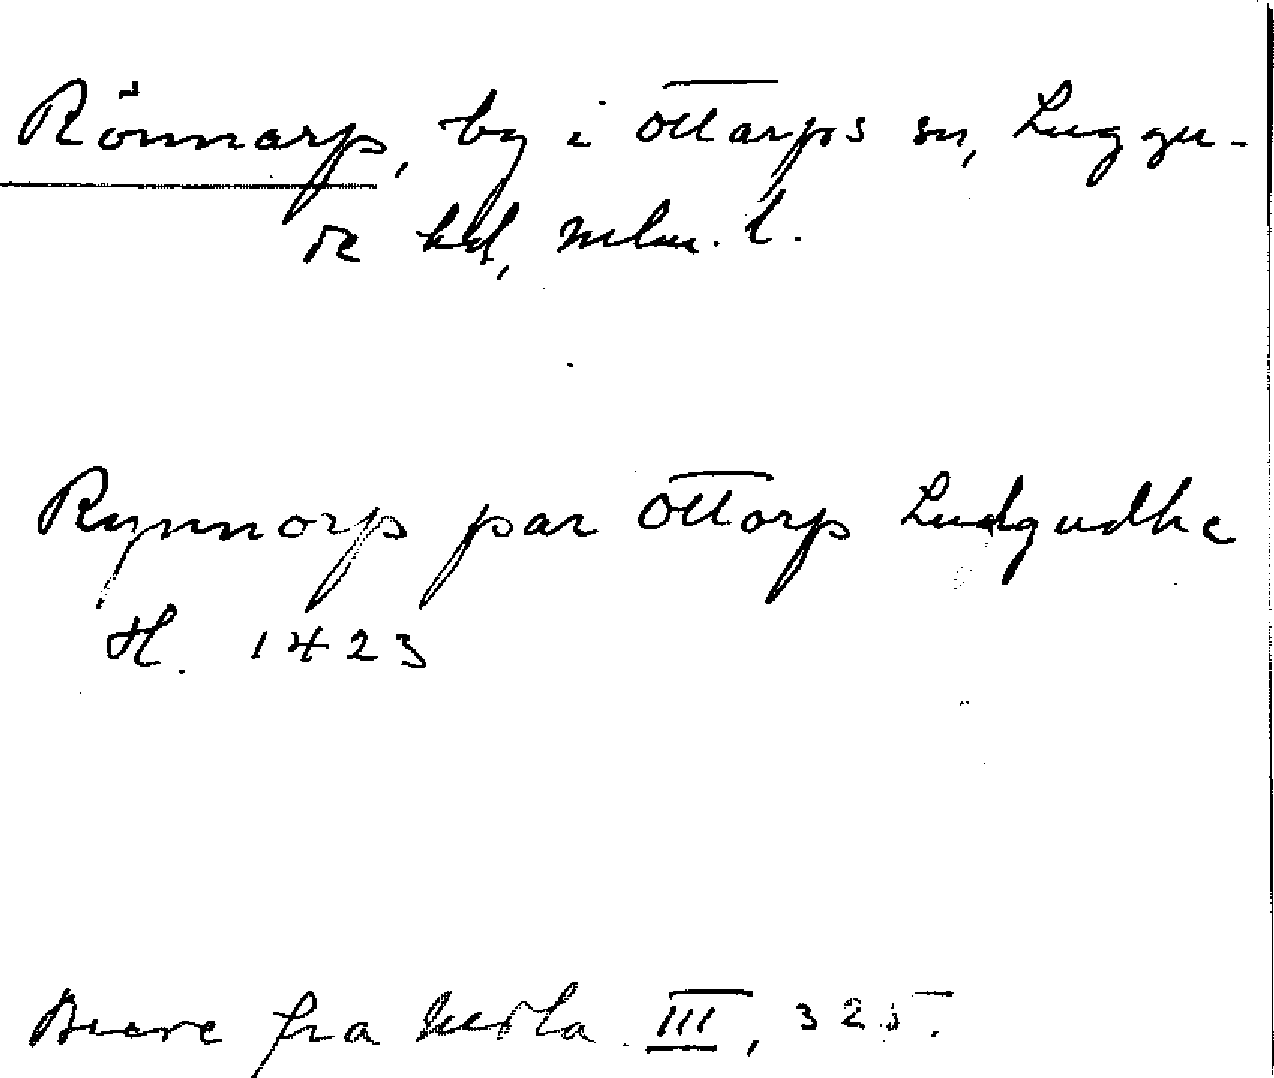 Rönnarp, by i Ottarps sn, Luggu-
de hd, Mlm. l.
Rynnorp par Ottorp Ludgudhe
H. 1423
Breve fra Herla III, 325.